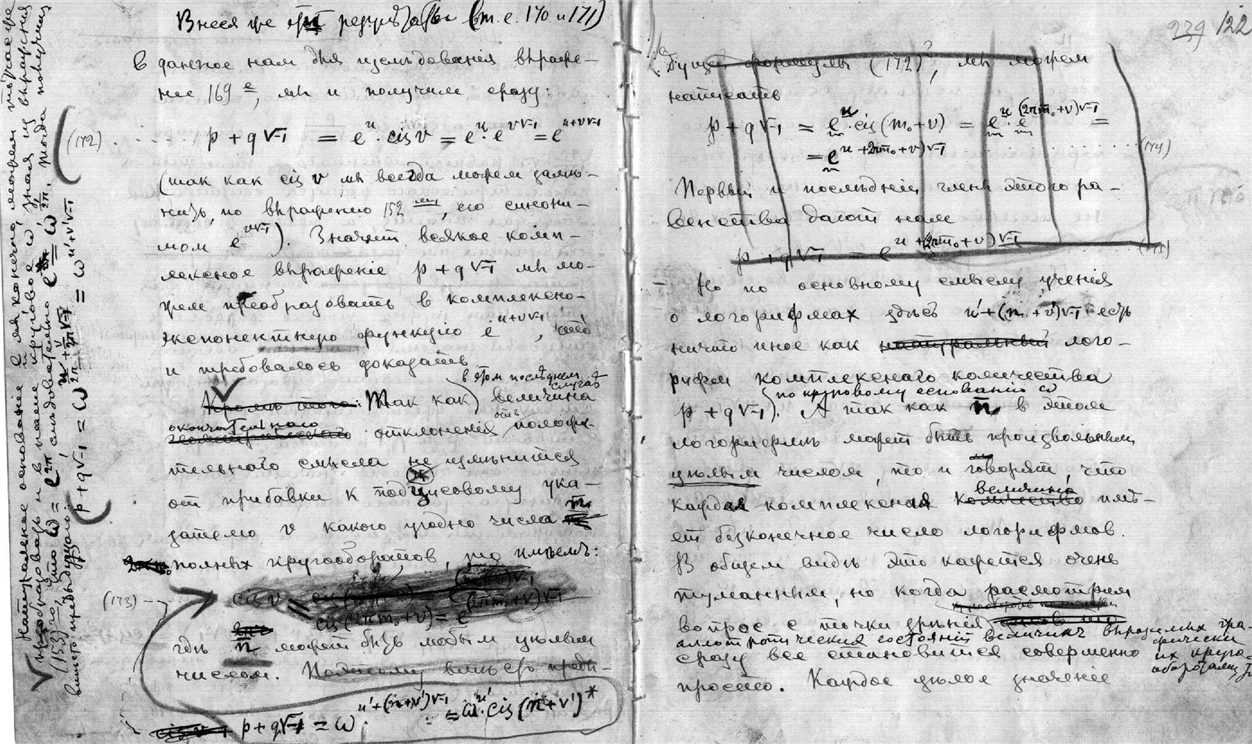 Внеся же эти результаты (т.е. 170 и 171)
в данное нам для изследования выраже-
ние 169 е, мы и получим сразу:
(172) p + q√-1 = e^u · cis v = e^u · e^{v√-1} = e^{u+v√-1}
(так как cis v мы всегда можем заме-
нить, по выражению 152, его синони-
мом e^{v√-1}). Значит всякое комп-
лексное выражение p + q√-1 мы мо-
жем преобразовать в комплексно-
экспонентную функцию e^{u+v√-1}, что
и требовалось доказать.
Кроме того: Так как в этом последнем случае величина
окончательного отклонения от положи-
тельного смысла не изменится
от прибавки к подцисовому ука-
зателю v какого угодно числа n
полных кругооборотов, то имеем:
(173) cis v =
cis(2πm₀+v) = e^{(2πm₀+v)√-1}
где n может быть любым целым
числом. Поэтому вместо преды-
p+q√-1 = ω^{u'+(n+v')√-1} = ω^{u'}·cis(n+v')*
Натуральное основание e мы, конечно, можем тоже
преобразовать и в наше круговое ω, зная из выражения
(153), что ω = e^{2π} и следовательно e = ω^{1/2π}, тогда получим
вместо предыдущаго:
p+q√-1 = ω^{u/2π + v/2π √-1} = ω^{u'+v'√-1}
229 122
дущей формулы (172), мы можем
написать
p + q√-1 = e^u · cis(m₀+v) = e^u · e^{(2πm₀+v)√-1} =
= e^{u+(2πm₀+v)√-1} (174)
Первый и последний член этого ра-
венства дают нам
p + q√-1 = e^{u+(2πm₀+v)√-1}
Но по основному смыслу учения
о логарифмах здесь u'+(n+v')√-1 есть
ничто иное как натуральный лога-
рифм комплекснаго количества
p + q√-1 (по круговому основанию ω). А так как n в этом
логарифме может быть произвольным
целым числом, то и говорят что
каждая комплексная количество величина име-
ет безконечное число логарифмов.
В общем виде это кажется очень
туманным, но когда расмотрим
вопрос с точки зрения
аллотропических состояний величин выразимых графически их кругооборотами,
сразу все становится совершенно
просто. Каждое целое значение